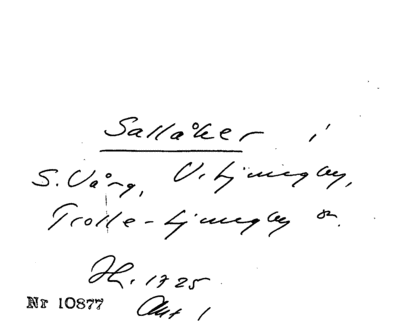 Sallåker i
S. Vång, V. Ljungby,
Trolle-Ljungby sn.
Jb. 1725
Nr 10877 Akt 1